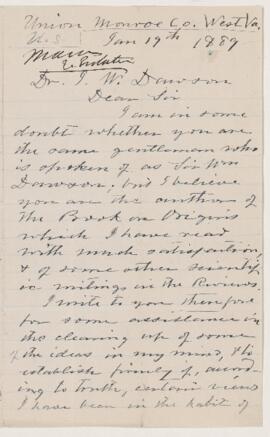 Union Monroe Co. West Va.
U.S. Jan 19th 1889
Man
& Evolution
Dr. J. W. Dawson
Dear Sir
I am in some
doubt whether you are
the same gentleman who
is spoken of as Sir Wm
Dawson, but I believe
you are the author of
the Book on Origins
which I have read
with much satisfaction,
& of some other scientif-
ic writings in the Reviews.
I write to you therefore
for some assistance in
the clearing up of some
of the ideas in my mind, & to
establish firmly if, accord-
ing to truth, certain views
I have been in the habit of